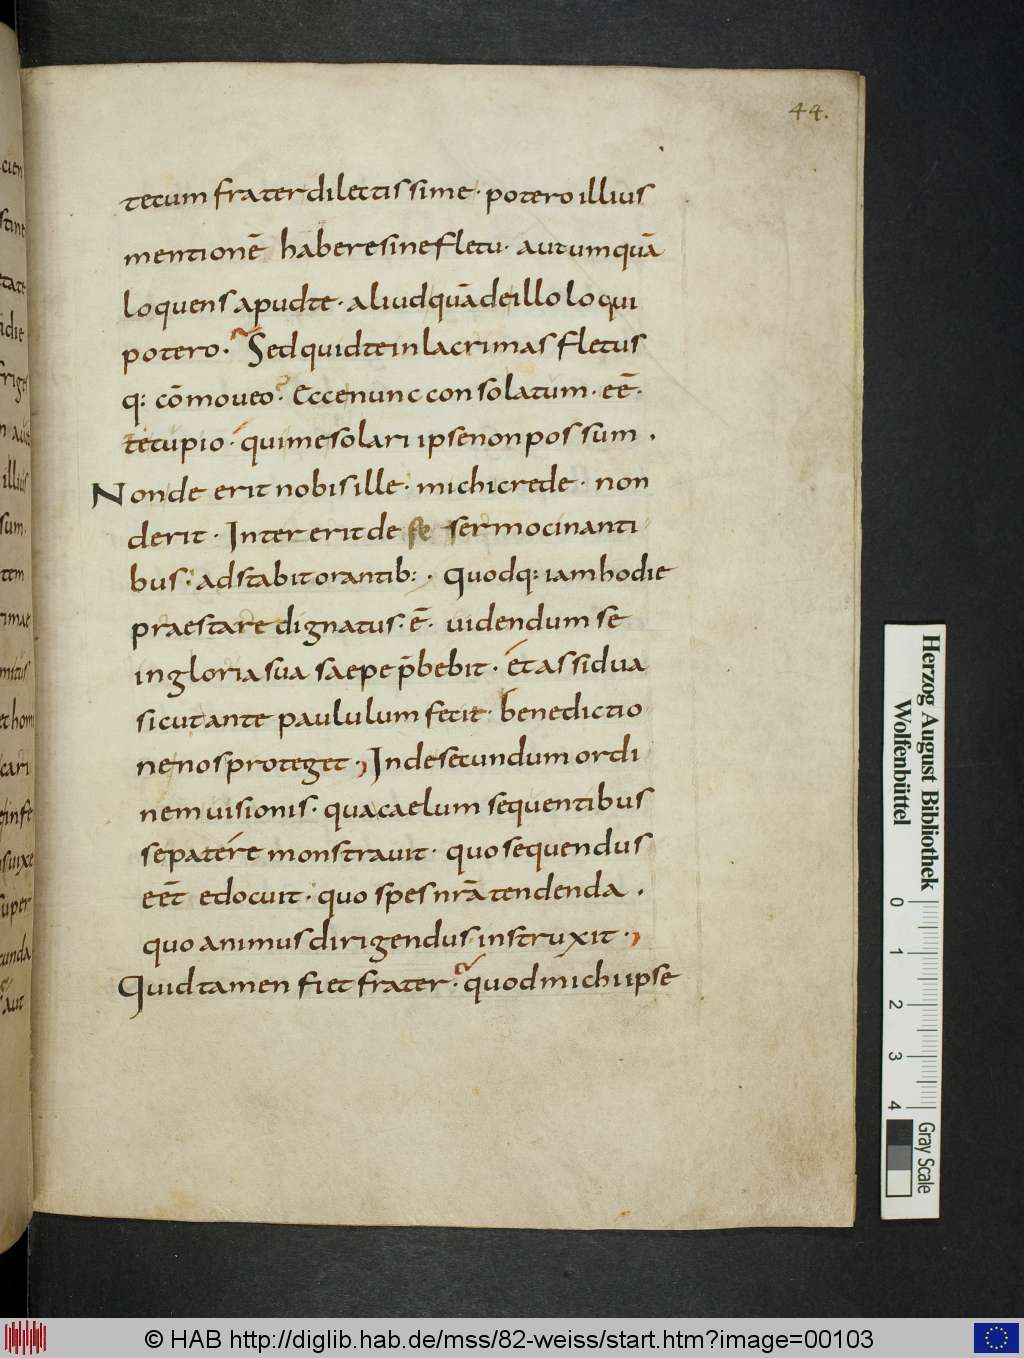 44.
tecum frater dilectissime · potero illius
mentionē habere sine fletu · aut umquā
loquens apud te · aliud quā de illo loqui
potero · Sed quid te in lacrimas fletus
q: cōmoveo? Ecce nunc consolatum · eē ·
te cupio · qui me solari ipse non possum .
Non deerit nobis ille · michi crede · non
derit · Inter erit de se sermocinanti
bus · adstabit orantib: · Quodq: iam hodie
praestare dignatus · ē · uidendum se
in gloria sua saepe p̄bebit · et assidua
sicut ante paululum fecit · benedictio
ne nos proteget · Inde secundum ordi
nem uisionis · qua caelum sequentibus
se patere monstrauit · quo sequendus
eēt edocuit · quo spes nrā tendenda .
quo animus dirigendus instruxit ·
Quid tamen fiet frater · quod michi ipse
Herzog August Bibliothek
Wolfenbüttel
0 1 2 3 4
Gray Scale
© HAB http://diglib.hab.de/mss/82-weiss/start.htm?image=00103